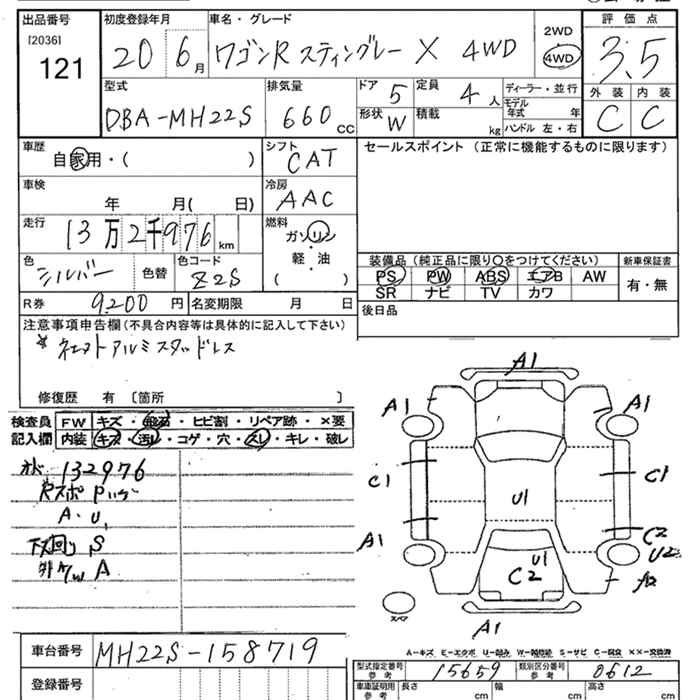 出品番号 初度登録年月 車名・グレード 2WD 4WD 評価点
[2036] 121 20 6月 ワゴンR スティングレー X 4WD 3.5
型式 排気量 ドア 5 定員 4人 ディーラー・並行 外装 内装
DBA-MH22S 660 CC 形状 W 積載 kg モデル年式 年 C C
ハンドル 左・右
車歴 自家用・( ) シフト CAT セールスポイント (正常に機能するものに限ります)
車検 年 月( 日) 冷房 AAC
走行 13万2千976 km 燃料 ガソリン
軽・油
( )
色 シルバー 色替 色コード Z2S
装備品 (純正品に限り〇をつけてください) 新車保証書
PS PW ABS エアB AW 有・無
SR ナビ TV カワ
R券 9,200円 名変期限 月 日 後日品
注意事項申告欄(不具合内容等は具体的に記入して下さい)
アルミスタッドレス
修復歴 有〔箇所 〕
検査員 FW キズ・飛石・ヒビ割・リペア跡・×要
記入欄 内装 キズ・汚れ・コゲ・穴・スレ・キレ・破し
132976
A・U1
下回り S
A
A1
A1 A1
C1 C1
U1
A1 C2
U2
U1
C2 A2
スペア
A1
A-キズ E-エクボ U-凹み W-補修跡 S-サビ C-腐食 ××-交換済
車台番号 MH22S-158719
登録番号
型式指定番号 参考 15659 類別区分番号 参考 0612
車庫証明用 参考 長さ cm 幅 cm 高さ cm